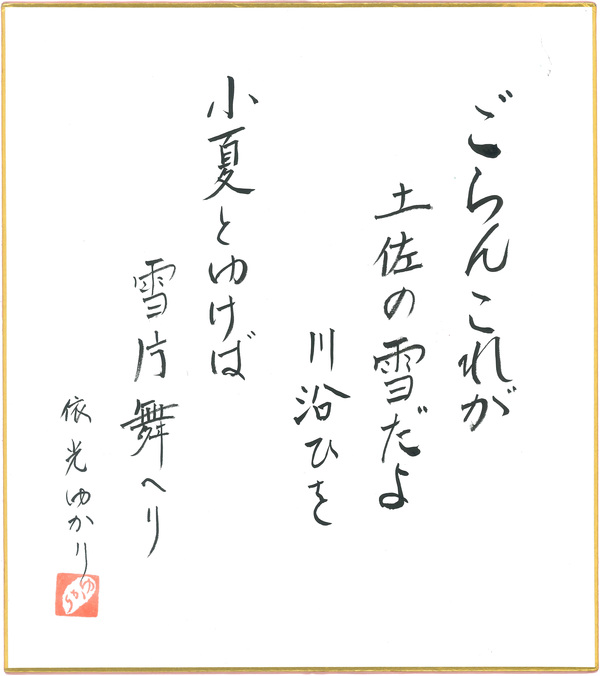 ごらんこれが
土佐の雪だよ
川沿ひを
小夏とゆけば
雪片舞へり
依光ゆかり